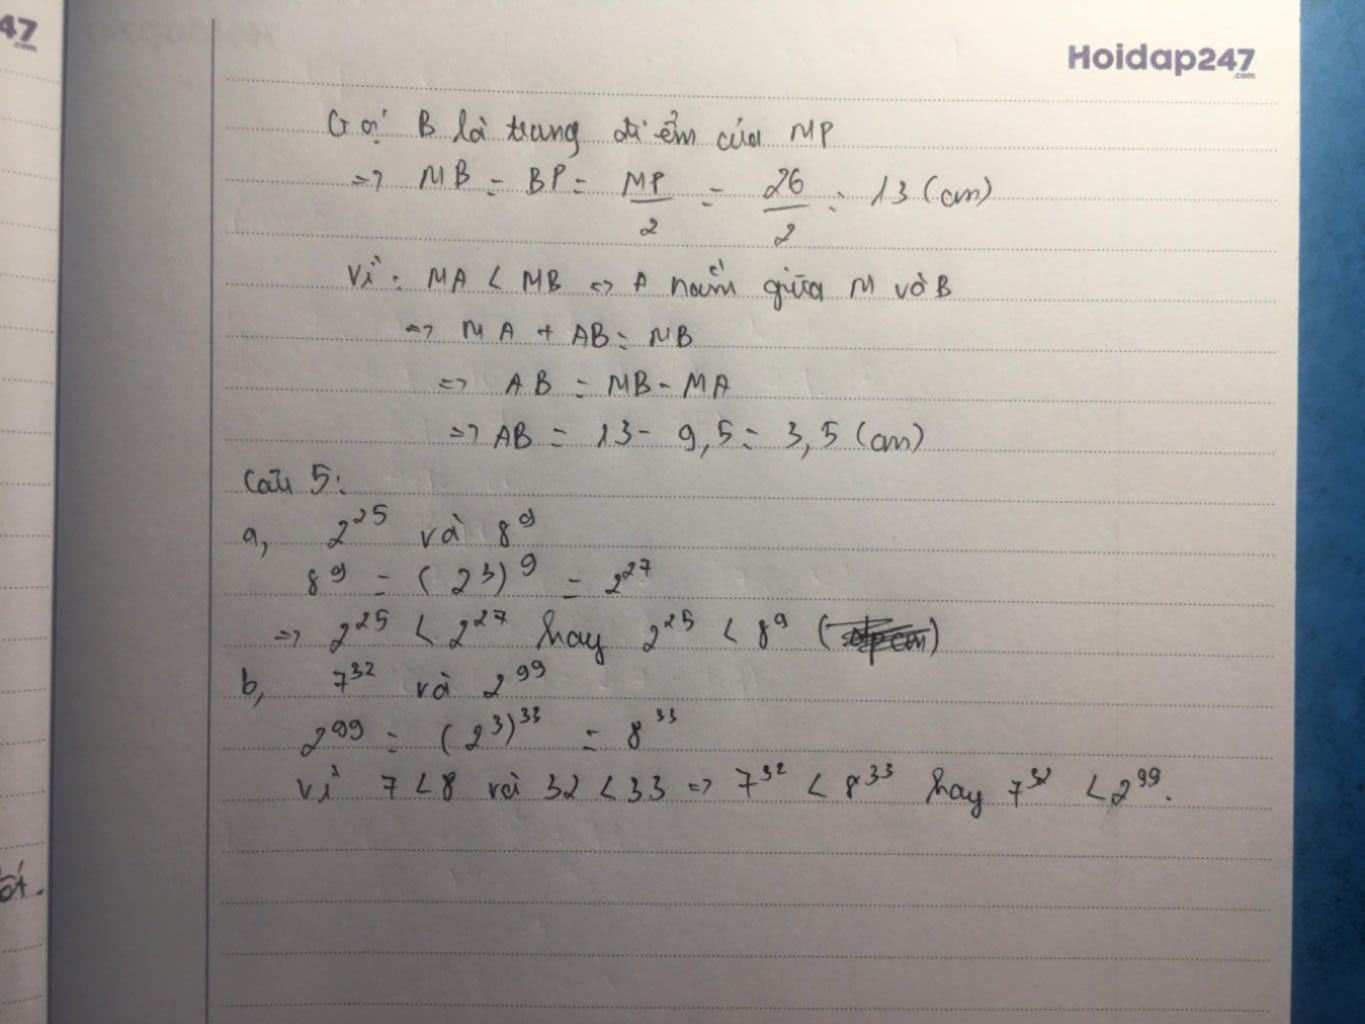 47
.com
Hoidap247
.com
Gọi B là trung điểm của MP
=> MB = BP = MP/2 = 26/2 = 13 (cm)
Vì: MA < MB => A nằm giữa M và B
=> MA + AB = MB
=> AB = MB - MA
=> AB = 13 - 9,5 = 3,5 (cm)
Câu 5:
a, 2^25 và 8^9
8^9 = (2^3)^9 = 2^27
=> 2^25 < 2^27 hay 2^25 < 8^9
b, 7^32 và 2^99
2^99 = (2^3)^33 = 8^33
Vì 7 < 8 và 32 < 33 => 7^32 < 8^33 hay 7^32 < 2^99.